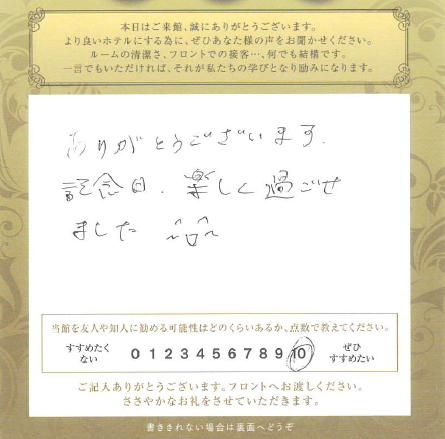 本日はご来館、誠にありがとうございます。
より良いホテルにする為に、ぜひあなた様の声をお聞かせください。
ルームの清潔さ、フロントでの接客…、何でも結構です。
一言でもいただければ、それが私たちの学びとなり励みになります。
ありがとうございます.
記念日、楽しく過ごせ
ました ^_^
当館を友人や知人に勧める可能性はどのくらいあるか、点数で教えてください。
すすめたくない 0 1 2 3 4 5 6 7 8 9 10 ぜひすすめたい
ご記入ありがとうございます。フロントへお渡しください。
ささやかなお礼をさせていただきます。
書ききれない場合は裏面へどうぞ